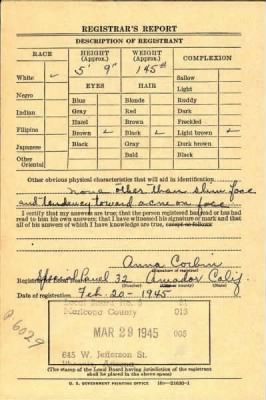 REGISTRAR'S REPORT
DESCRIPTION OF REGISTRANT
RACE HEIGHT (Approx.) WEIGHT (Approx.) COMPLEXION
5' 9" 145
White ✓ EYES HAIR Sallow
Light
Negro Blue Blonde Ruddy
Indian Gray Red Dark
Hazel Brown Freckled
Filipino Brown ✓ Black ✓ Light brown ✓
Japanese Black Gray Dark brown
Other Oriental Bald Black
Other obvious physical characteristics that will aid in identification
none other than slim face
and tendency toward acne on face
I certify that my answers are true; that the person registered has read or has had
read to him his own answers; that I have witnessed his signature or mark and that
all of his answers of which I have knowledge are true, except as follows:
Anna Corbin
(Signature of registrar)
Registrar for Local Board Special Panel 32 Amador Calif.
(Number) (City or county) (State)
Date of registration Feb. 20 - 1945
Maricopa County 013
MAR 29 1945 003
645 W. Jefferson St.
Phoenix, Arizona
(The stamp of the Local Board having jurisdiction of the registrant
shall be placed in the above space)
U. S. GOVERNMENT PRINTING OFFICE 16—21630-1